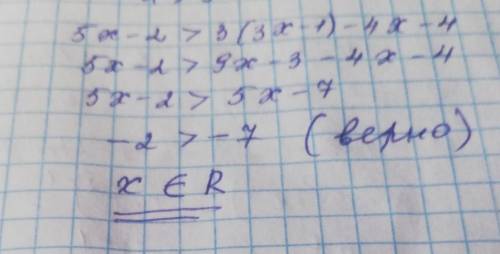 5x - 2 > 3(3x - 1) - 4x - 4
5x - 2 > 9x - 3 - 4x - 4
5x - 2 > 5x - 7
-2 > -7 (верно)
x ∈ R